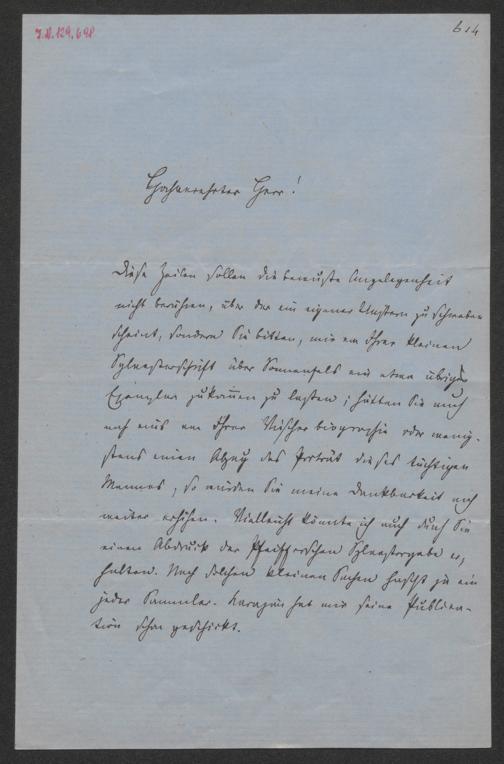 I.N. 129.698
614
Hochverehrter Herr!
Diese Zeilen sollen die bewußte Angelegenheit
nicht berühren, über der ein eigener Unstern zu schweben
scheint, sondern Sie bitten, mir von Ihrer kleinen
Sylvesterschrift über Sonnenfels ein etwa übriges
Exemplar zukommen zu lassen; hätten Sie auch
noch eins von Ihrer Vischer biographie oder wenig-
stens einen Abzug des Porträt dieses tüchtigen
Mannes, so würden Sie meine Dankbarkeit noch
weiter erhöhen. Vielleicht könnte ich auch durch Sie
einen Abdruck der Pfeifferschen Sylvestergabe er,
halten. Nach solchen kleinen Sachen hascht ja ein
jeder Sammler. Karajan hat mir seine Publica-
tion schon geschickt.